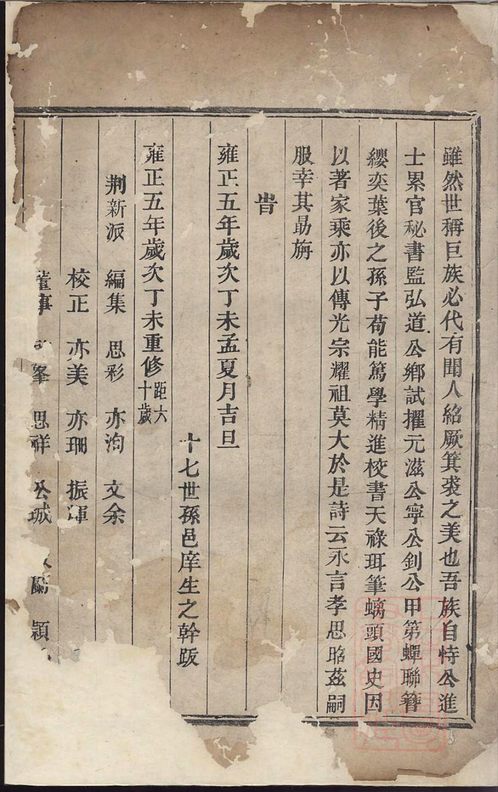 雖然世稱巨族必代有聞人紹厥箕裘之美也吾族自恃公進
士累官秘書監弘道公鄉試擢元滋公寧公釗公甲第蟬聯簪
纓奕葉後之孫子苟能篤學精進校書天祿珥筆螭頭國史因
以著家乘亦以傳光宗耀祖莫大於是詩云永言孝思昭茲嗣
服幸其勗旃
旹
雍正五年歲次丁未孟夏月吉旦
十七世孫邑庠生之幹跋
雍正五年歲次丁未重修距六十歲
荆新派 編集 思彩 亦洵 文余
校正 亦美 亦珊 振渾
董事 峯 思祥 公城 陽 穎